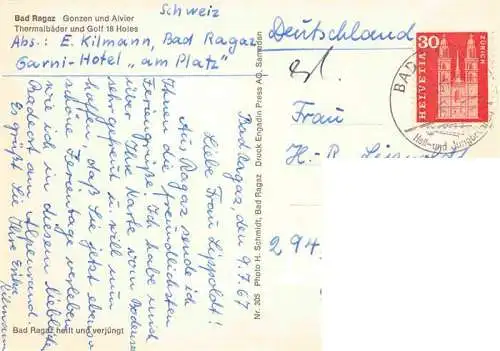 Bad Ragaz Gonzen und Alvier
Thermalbäder und Golf 18 Holes
Schweiz
Abs.: E. Kilmann, Bad Ragaz
Garni-Hotel „am Platz"
Deutschland
Bad Ragaz, den 9.7.67
Liebe Frau Lippoldt!
Aus Ragaz sende ich
Ihnen die freundlichsten
Feriengrüße. Ich habe mich
über Ihre Karte vom Bodensee
sehr gefreut u. will nun
hoffen, daß Sie jetzt ebenso
schöne Ferientage verleben
wie ich in diesem lieblichen
Badeort am Alpenrand.
Es grüßt Sie Ihre Erika
Kilmann
Bad Ragaz heilt und verjüngt
Nr. 305 Photo H. Schmidt, Bad Ragaz Druck Engadin Press AG. Samedan
Frau
H.-R. Lippoldt
294
30
HELVETIA
ZÜRICH
BAD
Heil- und Jungbrunnen